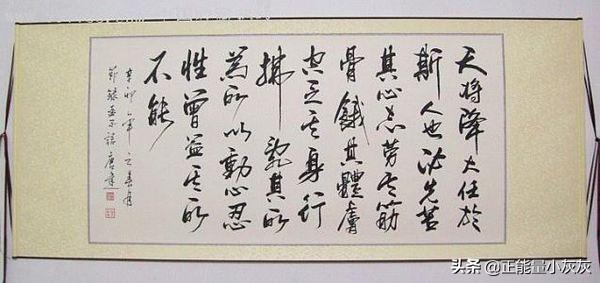 天将降大任於
斯人也必先苦
其心志劳其筋
骨餓其體膚
空乏其身行
拂亂其所
為所以動心忍
性曾益其所
不能
辛卯年之春月
節録孟子語
头条 @正能量小灰灰